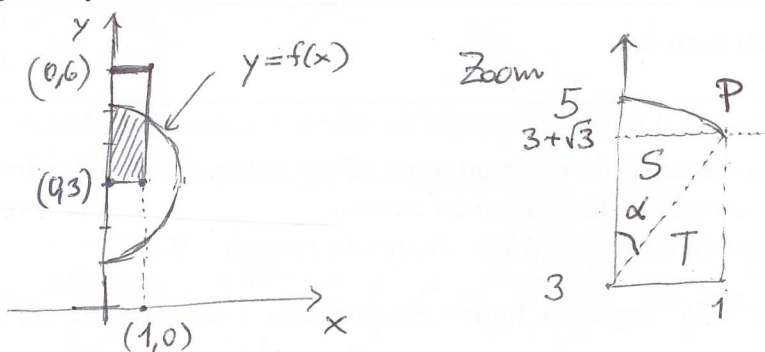 y
(0,6)
y=f(x)
(0,3)
(1,0)
x
Zoom
5
P
3+√3
S
α
T
3
1